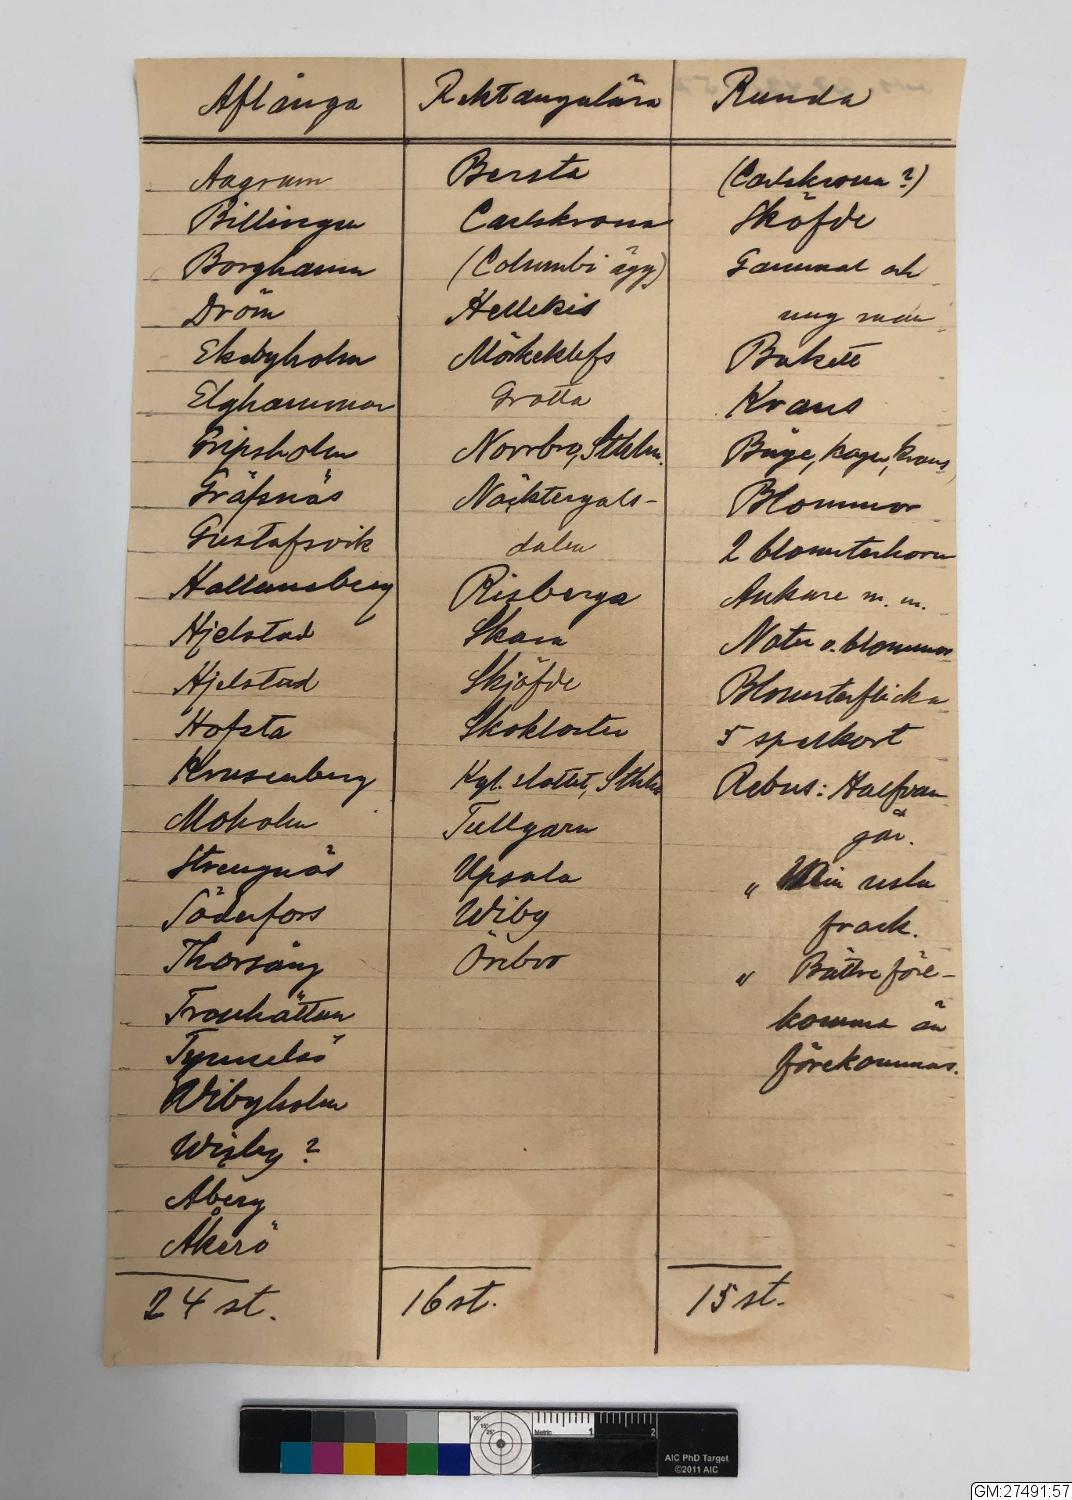 Aflånga
Aagrum
Billingen
Borghamn
Dröm
Ekebyholm
Elghammar
Gripsholm
Gräfsnäs
Gustafsvik
Hallunsberg
Hjelstad
Hjelstad
Hofsta
Krusenberg
Moholm
Strengnäs
Söderfors
Thorsång
Trollhättan
Tynnelsö
Wibyholm
Wisby ?
Åberg
Åkerö
24 st.
Rektangulära
Bersta
Carlskrona
(Columbi ägg)
Hellekis
Mörkeklefs
Grotta
Norrbro, Sthlm.
Näcktergals-
dalen
Risberga
Skara
Skjöfde
Skokloster
Kgl. slottet, Sthlm
Tullgarn
Upsala
Wiby
Örebro
16 st.
Runda
(Carlskrona ?)
Sköfde
Gammal och
ung man
Bukett
Krans
Båge, koger, krans
Blommor
2 blomsterhorn
Ankare m. m.
Noter o. blommor
Blomsterflicka
5 spelkort
Rebus: Halfvan
går.
" Min usla
frack.
" Bättre före-
komma än
förekommas.
15 st.
Metric
1
2
AIC PhD Target
©2011 AIC
GM:27491:57